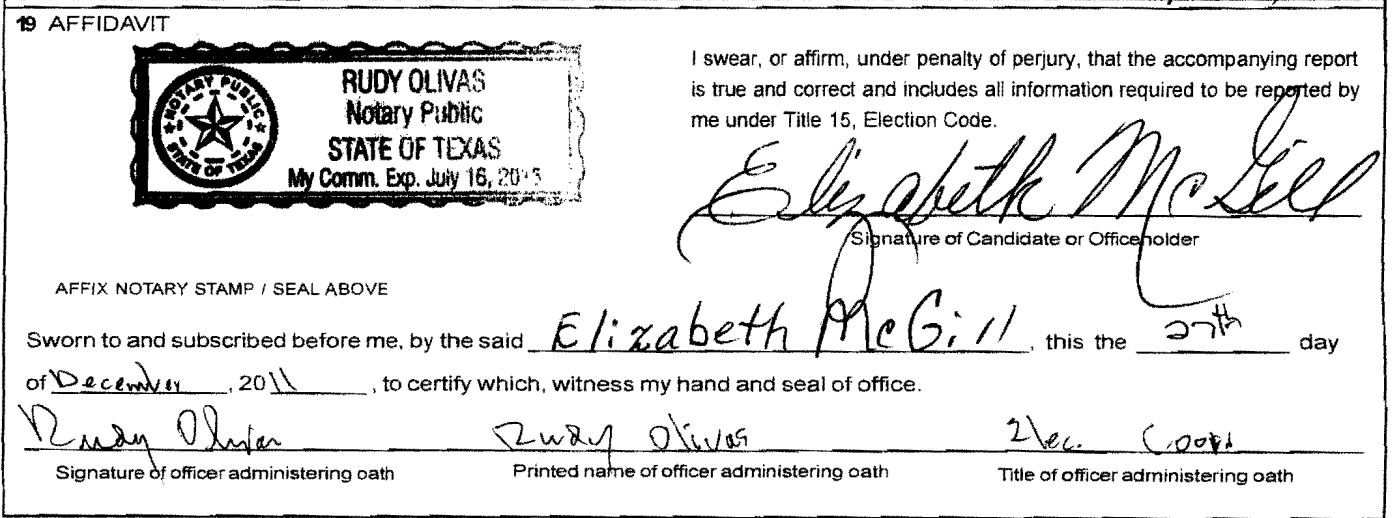 19 AFFIDAVIT
NOTARY PUBLIC
STATE OF TEXAS
RUDY OLIVAS
Notary Public
STATE OF TEXAS
My Comm. Exp. July 16, 2015
I swear, or affirm, under penalty of perjury, that the accompanying report
is true and correct and includes all information required to be reported by
me under Title 15, Election Code.
Elizabeth McGill
Signature of Candidate or Officeholder
AFFIX NOTARY STAMP / SEAL ABOVE
Sworn to and subscribed before me, by the said Elizabeth McGill, this the 27th day
of December, 2011, to certify which, witness my hand and seal of office.
Rudy Olivas Rudy Olivas Elec. Coord
Signature of officer administering oath Printed name of officer administering oath Title of officer administering oath